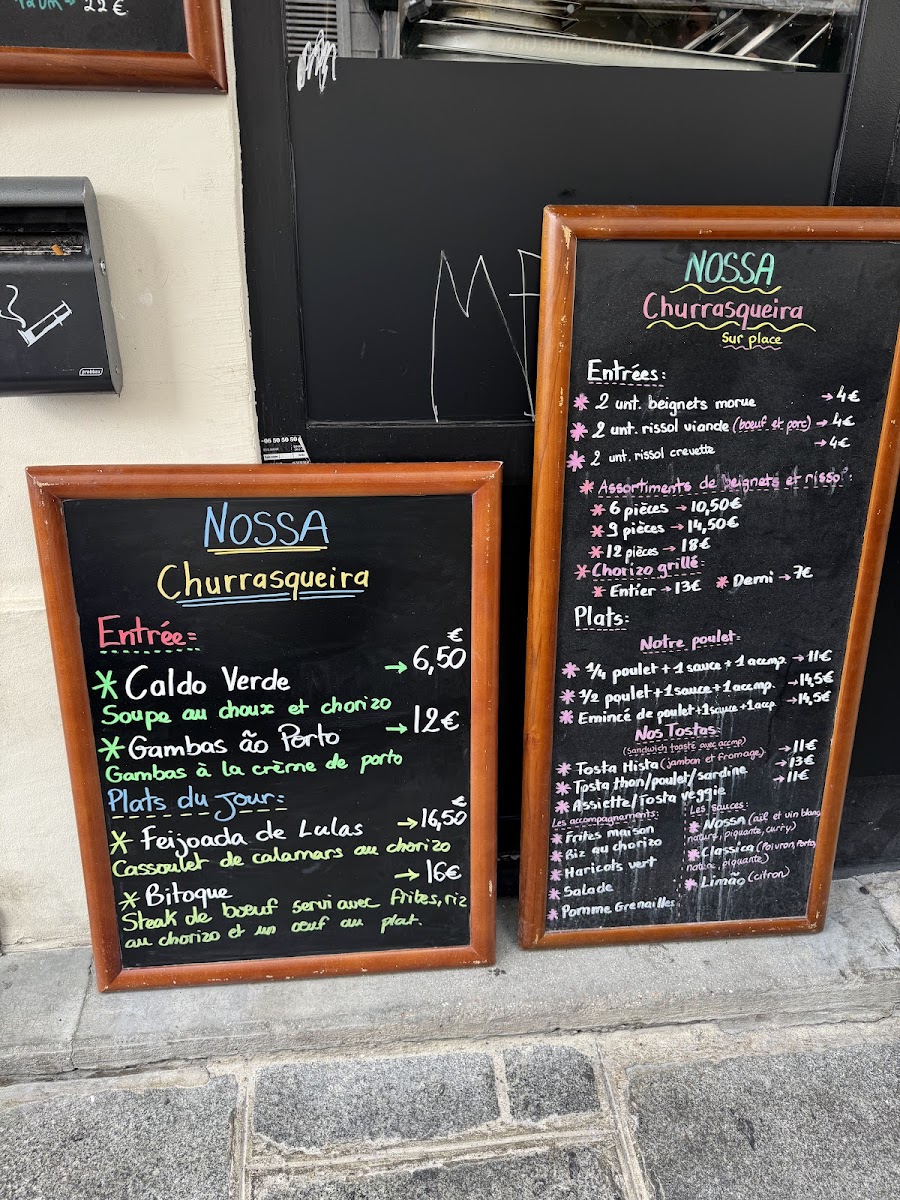 22€
probbax
NOSSA
Churrasqueira
Entrée:
* Caldo Verde → 6,50 €
Soupe au choux et chorizo
* Gambas ão Porto → 12€
Gambas à la crème de porto
Plats du jour:
* Feijoada de Lulas → 16,50 €
Cassoulet de calamars au chorizo
* Bitoque → 16€
Steak de bœuf servi avec frites, riz
au chorizo et un œuf au plat.
NOSSA
Churrasqueira
Sur place
Entrées:
* 2 unt. beignets morue → 4€
* 2 unt. rissol viande (bœuf et porc) → 4€
* 2 unt. rissol crevette → 4€
* Assortiments de beignets et rissol:
* 6 pièces → 10,50€
* 9 pièces → 14,50€
* 12 pièces → 18€
* Chorizo grillé:
* Entier → 13€ * Demi → 7€
Plats:
Notre poulet:
* 1/4 poulet + 1 sauce + 1 accmp. → 11€
* 1/2 poulet + 1 sauce + 1 accmp. → 14,5€
* Emincé de poulet + 1 sauce + 1 accp → 14,5€
Nos Tostas:
(sandwich toasté avec accmp)
* Tosta Mista (jambon et fromage) → 11€
* Tosta thon/poulet/sardine → 13€
* Assiette/Tosta veggie → 11€
Les accompagnements:
* Frites maison
* Riz au chorizo
* Haricots vert
* Salade
* Pomme Grenailles
Les sauces:
* NOSSA (ail et vin blanc
nature, piquante, curry)
* Classica (Poivron, Porto,
nature, piquante)
* Limão (citron)